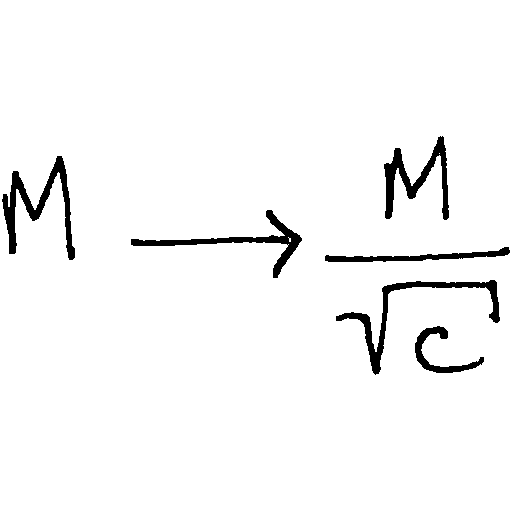 M → M/√C